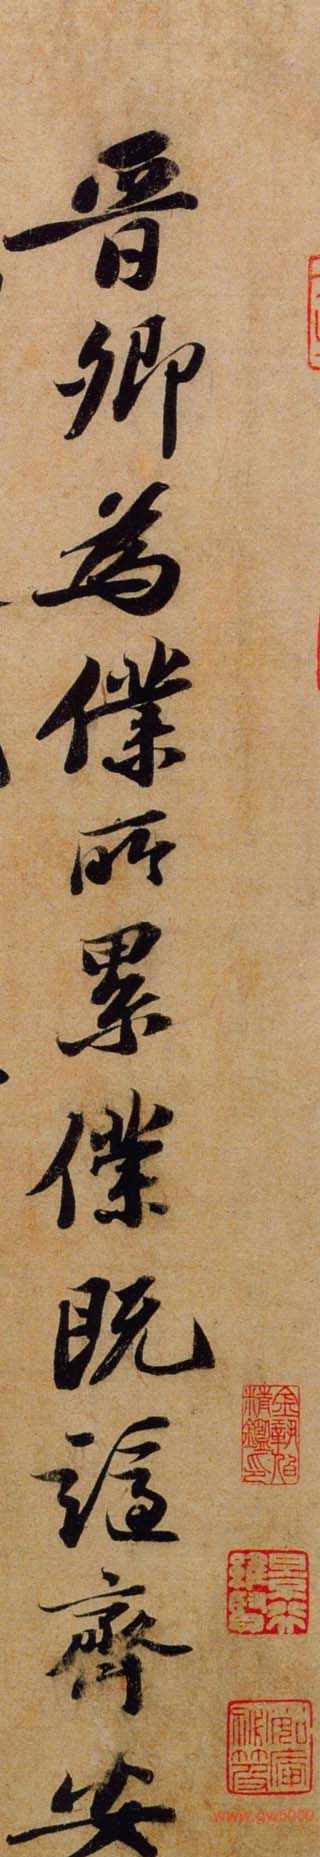 晉卿為僕所累僕既謫齊安
www.gw5000.